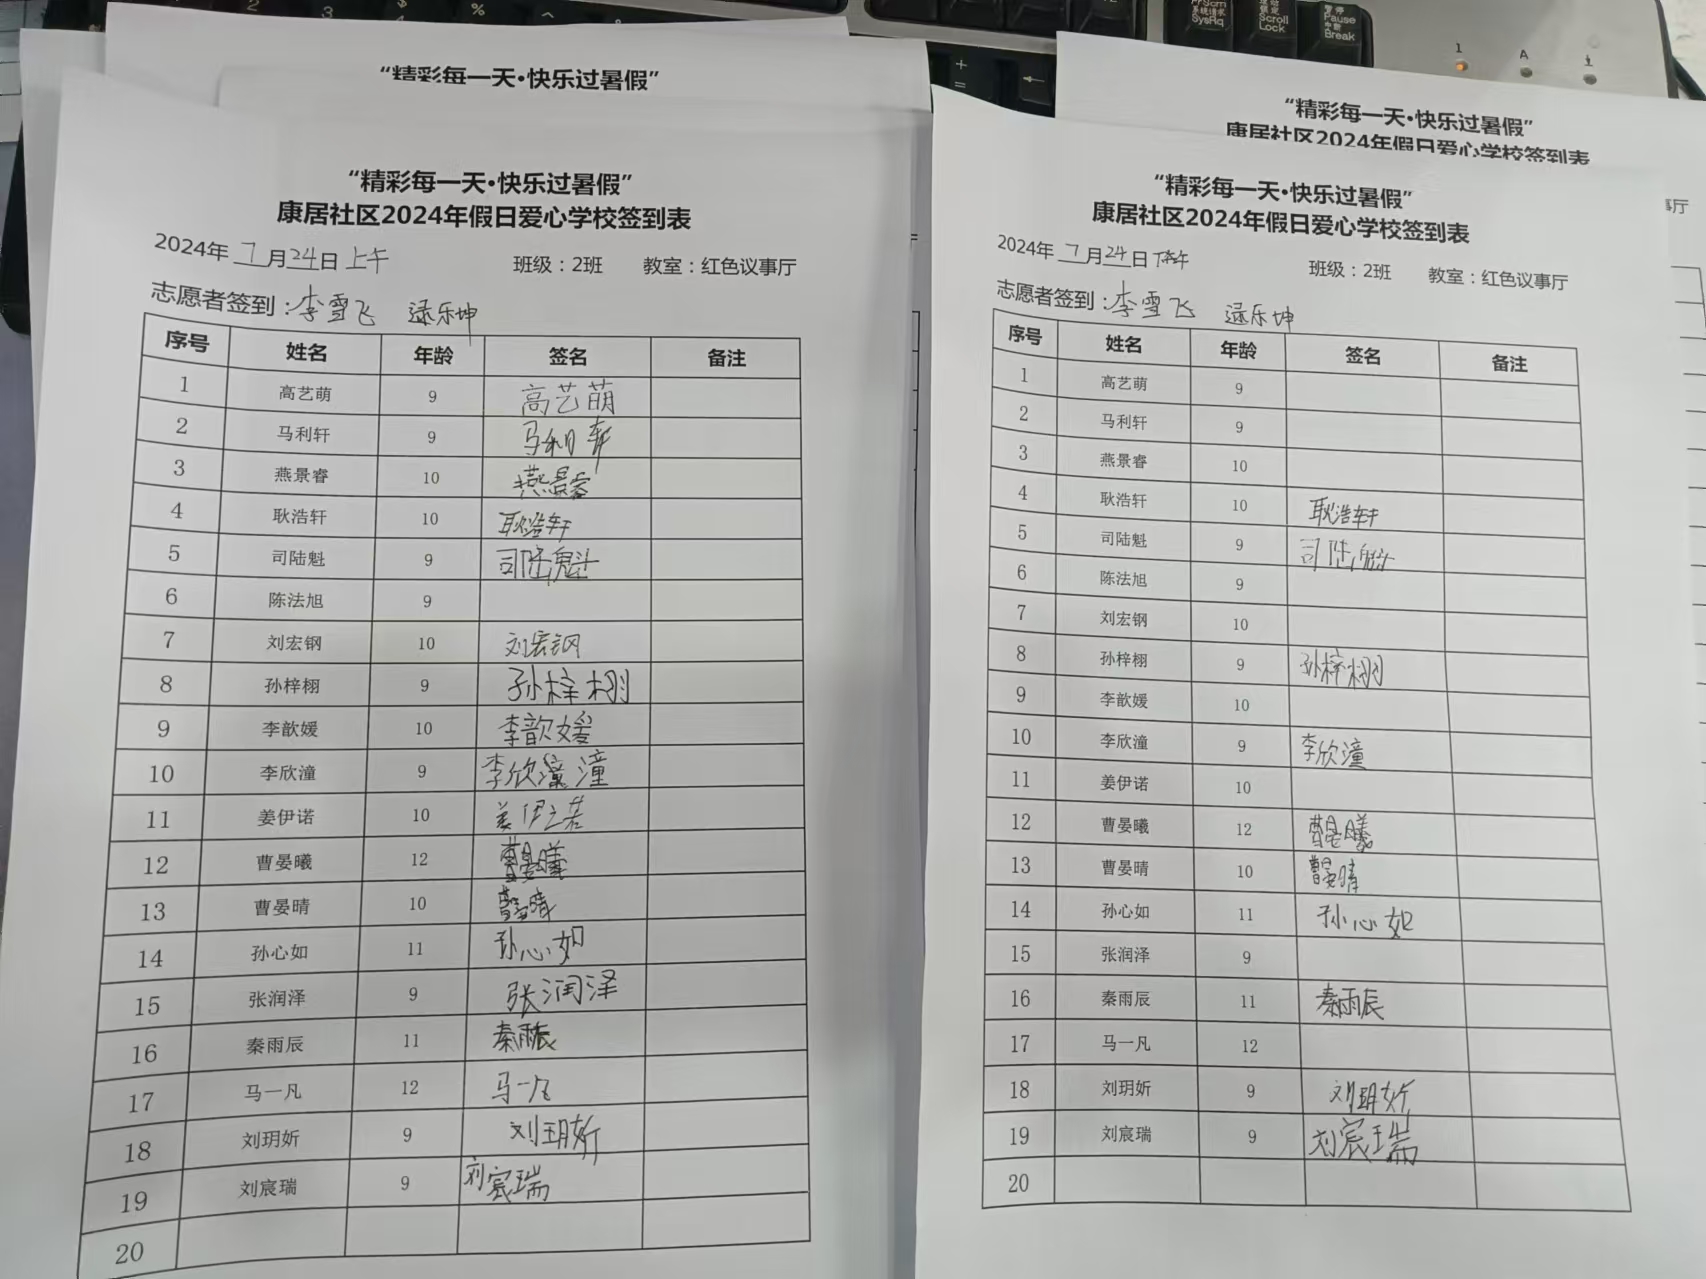 “精彩每一天·快乐过暑假”
“精彩每一天·快乐过暑假”
康居社区2024年假日爱心学校签到表
2024年 7月24日 上午 班级：2班 教室：红色议事厅
志愿者签到：李雪飞 逯乐坤
序号 姓名 年龄 签名 备注
1 高艺萌 9 高艺萌
2 马利轩 9 马利轩
3 燕景睿 10 燕景睿
4 耿浩轩 10 耿浩轩
5 司陆魁 9 司陆魁
6 陈法旭 9
7 刘宏钢 10 刘宏钢
8 孙梓栩 9 孙梓栩
9 李歆媛 10 李歆媛
10 李欣潼 9 李欣潼
11 姜伊诺 10 姜伊诺
12 曹晏曦 12 曹晏曦
13 曹晏晴 10 曹晏晴
14 孙心如 11 孙心如
15 张润泽 9 张润泽
16 秦雨辰 11 秦雨辰
17 马一凡 12 马一凡
18 刘玥妡 9 刘玥妡
19 刘宸瑞 9 刘宸瑞
20
“精彩每一天·快乐过暑假”
康居社区2024年假日爱心学校签到表
事厅
“精彩每一天·快乐过暑假”
康居社区2024年假日爱心学校签到表
2024年 7月24日 下午 班级：2班 教室：红色议事厅
志愿者签到：李雪飞 逯乐坤
序号 姓名 年龄 签名 备注
1 高艺萌 9
2 马利轩 9
3 燕景睿 10
4 耿浩轩 10 耿浩轩
5 司陆魁 9 司陆魁
6 陈法旭 9
7 刘宏钢 10
8 孙梓栩 9 孙梓栩
9 李歆媛 10
10 李欣潼 9 李欣潼
11 姜伊诺 10
12 曹晏曦 12 曹晏曦
13 曹晏晴 10 曹晏晴
14 孙心如 11 孙心如
15 张润泽 9
16 秦雨辰 11 秦雨辰
17 马一凡 12
18 刘玥妡 9 刘玥妡
19 刘宸瑞 9 刘宸瑞
20
PrScrn
系统请求
SysRq
Scroll
Lock
暂停
Pause
中断
Break
1
A